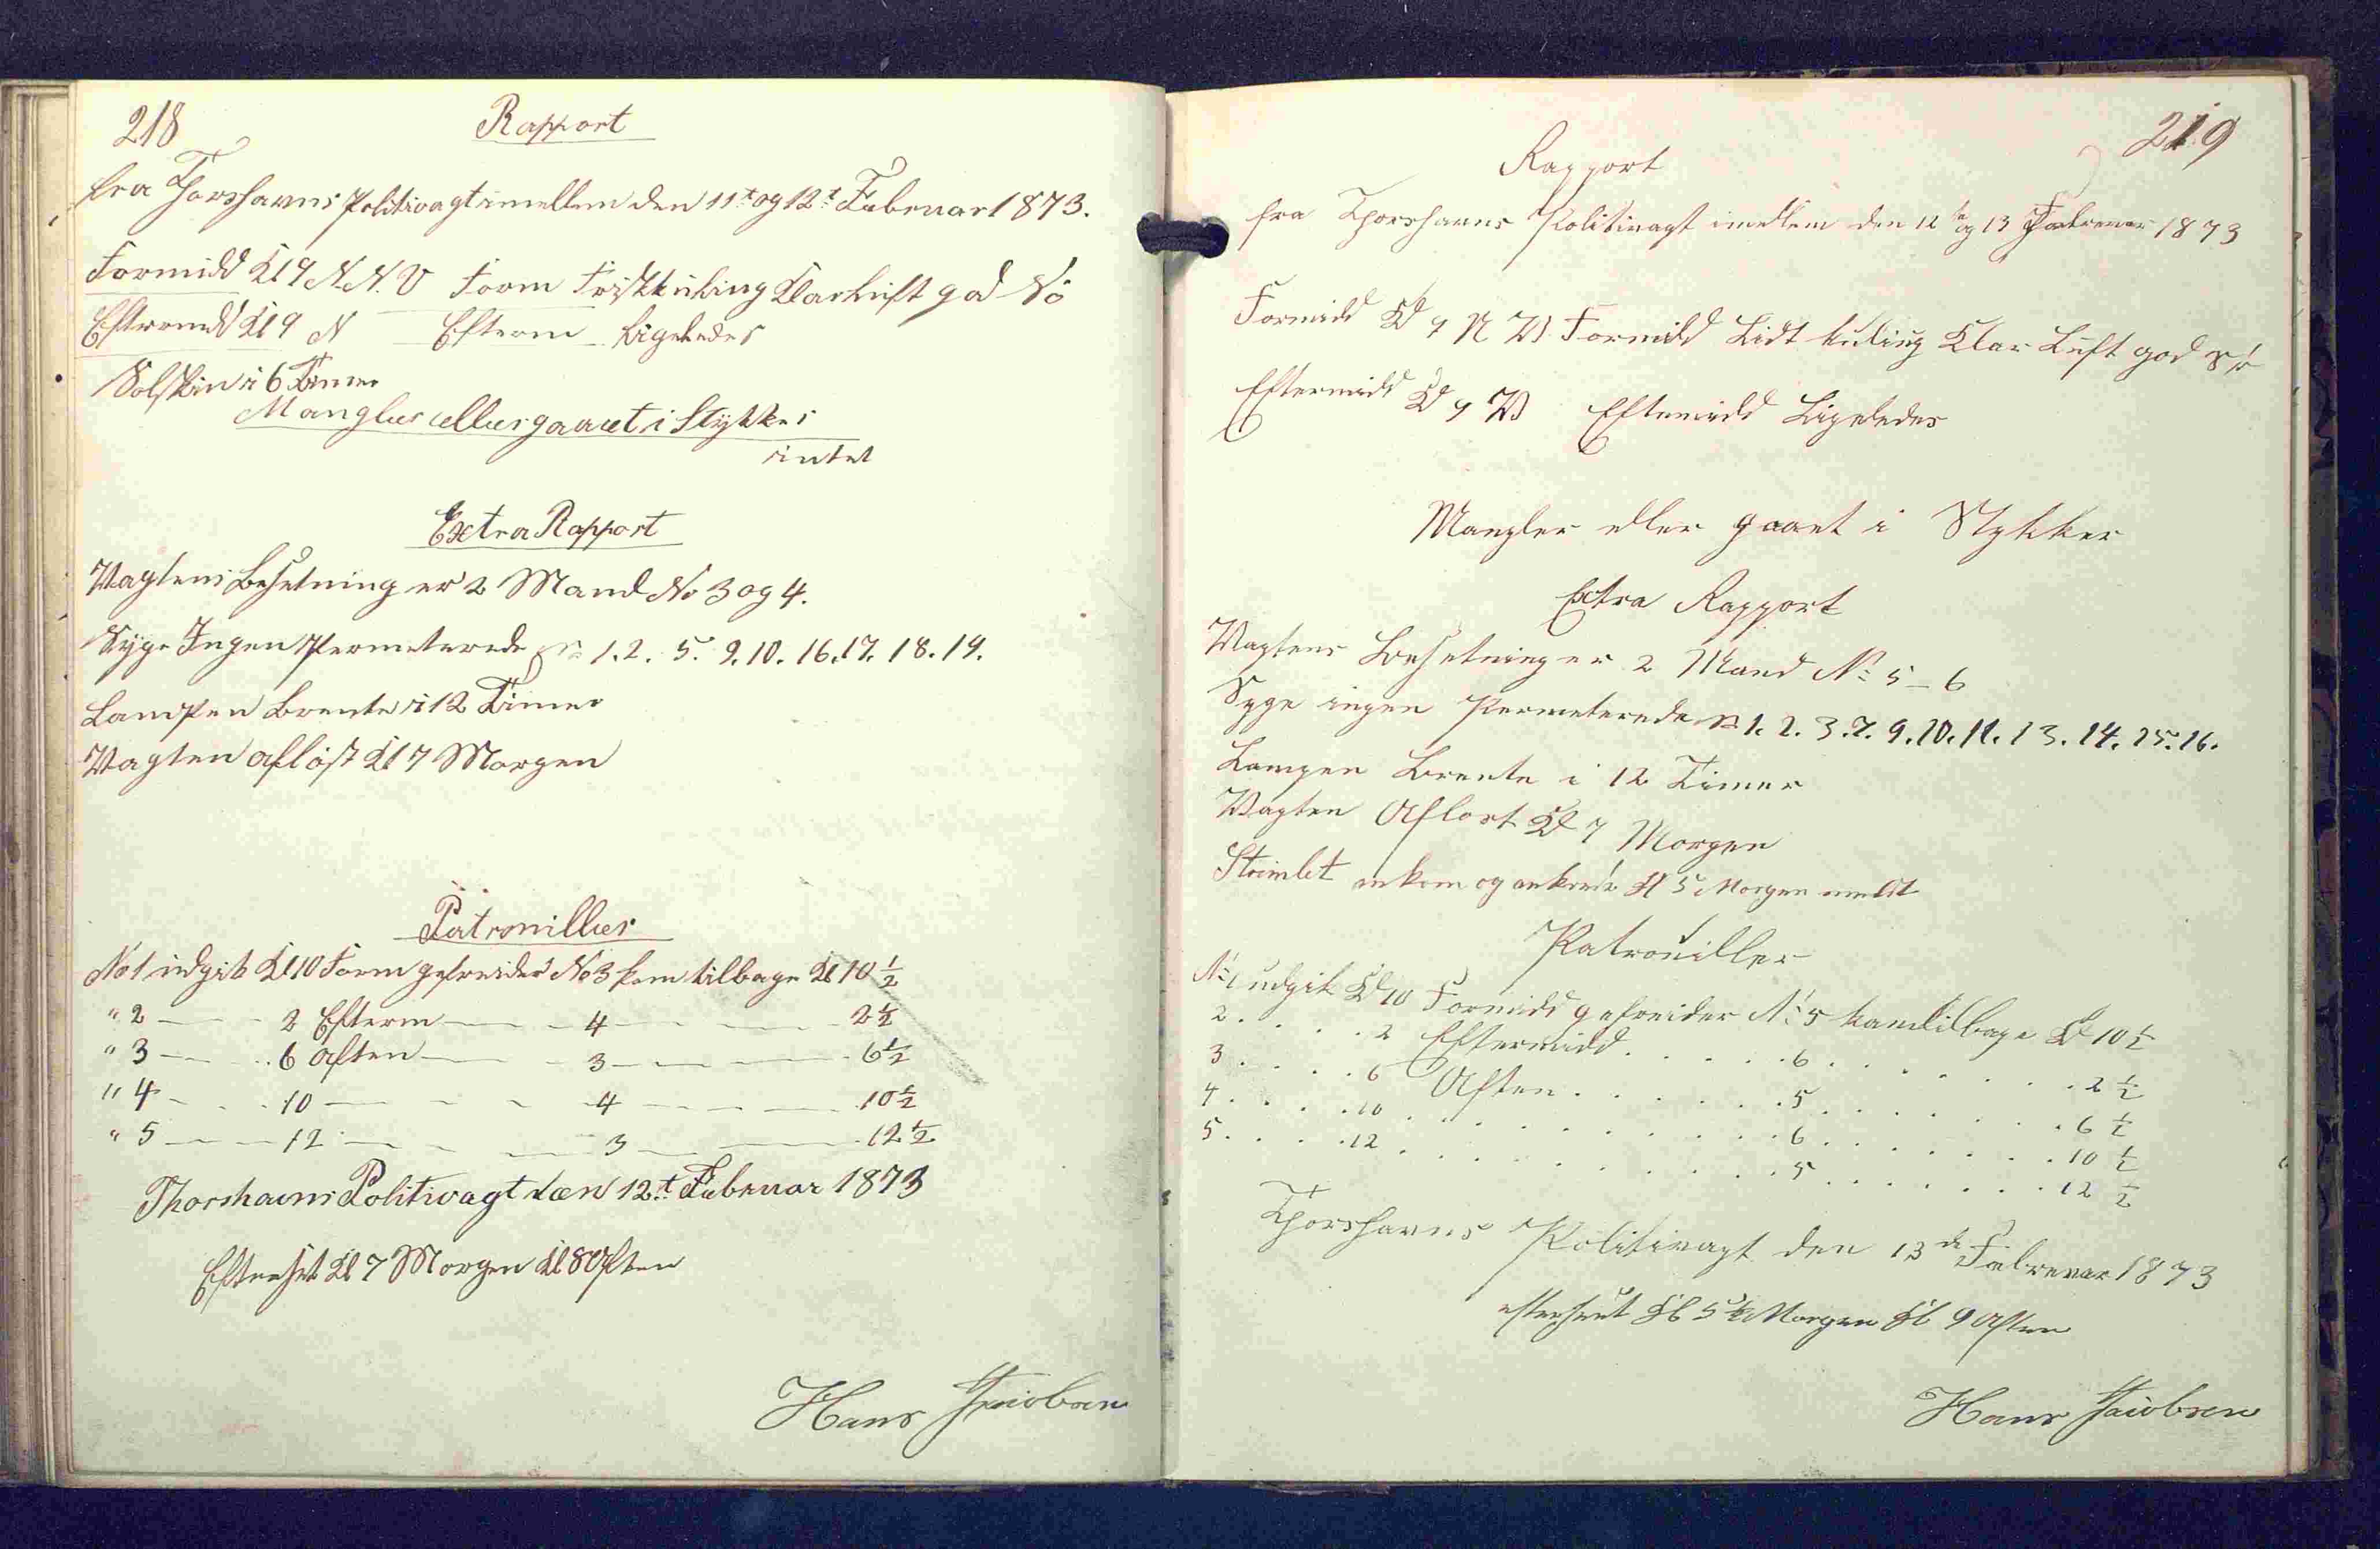 218
Rapport
fra Thorshavns Politivagt imellem den 11t og 12t Februar 1873.
Formidd Kl 9 N.N.V Form Frisk kuling Klar Luft god Sö
Efterm Kl 9 N Efterm Ligeledes
Solskin i 6 Timer
Mangler eller gaaet i Stykker
intet
Extra Rapport
Vagtens Besetning er 2 Mand No 3 og 4.
Syge Ingen Permeterede No 1. 2. 5. 9. 10. 16. 17. 18. 19.
Lampen Brente i 12 Timer
Vagten aflöst Kl 7 Morgen
Patrouiller
No 1 udgik Kl 10 Form gefreider No 3 kom tilbage Kl 10 1/2
" 2 — 2 Efterm — 4 — 2 1/2
" 3 — 6 Aften — 3 — 6 1/2
" 4 — 10 — 4 — 10 1/2
" 5 — 12 — 3 — 12 1/2
Thorshavns Politivagt den 12t Februar 1873
Efterset Kl 7 Morgen Kl 8 Aften
Hans Jacobsen
219
Rapport
fra Thorshavns Politivagt imellem den 12 og 13 Februar 1873
Formidd Kl 9 N V Formidd Lidt kuling Klar Luft god Sö
Eftermidd Kl 9 V Eftemidd Ligeledes
Mangler eller gaaet i Stykker
Extra Rapport
Vagtens Besetning er 2 Mand No 5 - 6
Syge ingen Permeterede No 1. 2. 3. 7. 9. 10. 11. 13. 14. 15. 16.
Lampen Brente i 12 Timer
Vagten Aflost Kl 7 Morgen
Stoimbt ankom og ankrede Kl 5 Morgen meldt
Patrouiller
No 1 udgik Kl 10 Formidd gefreider No 5 kom tilbage Kl 10 1/2
2 . . . . 2 Eftermidd . . . . . 6 . . . . . . 2 1/2
3 . . . . 6 Aften . . . . . . 5 . . . . . . 6 1/2
4 . . . . 10 . . . . . . . . 6 . . . . . . 10 1/2
5 . . . . 12 . . . . . . . . 5 . . . . . . 12 1/2
Thorshavns Politivagt den 13de Februar 1873
efterseet Kl 5 1/2 Morgen Kl 9 Aften
Hans Jacobsen